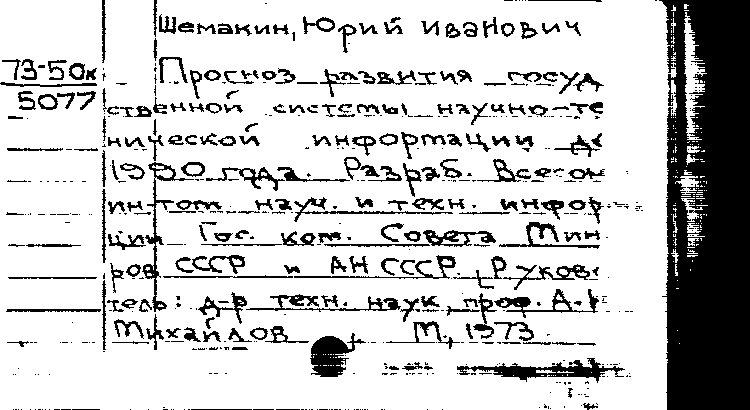 Шемакин, Юрий Иванович
73-50к
5077
Прогноз развития госуд
ственной системы научно-те
нической информации
1990 года. Разраб. Всесоюз
ин-том науч. и техн. инфор
ции Гос. ком. Совета Мин
ров СССР и АН СССР. [Руков
тель: д-р техн. наук, проф. А.И
Михайлов М., 1973